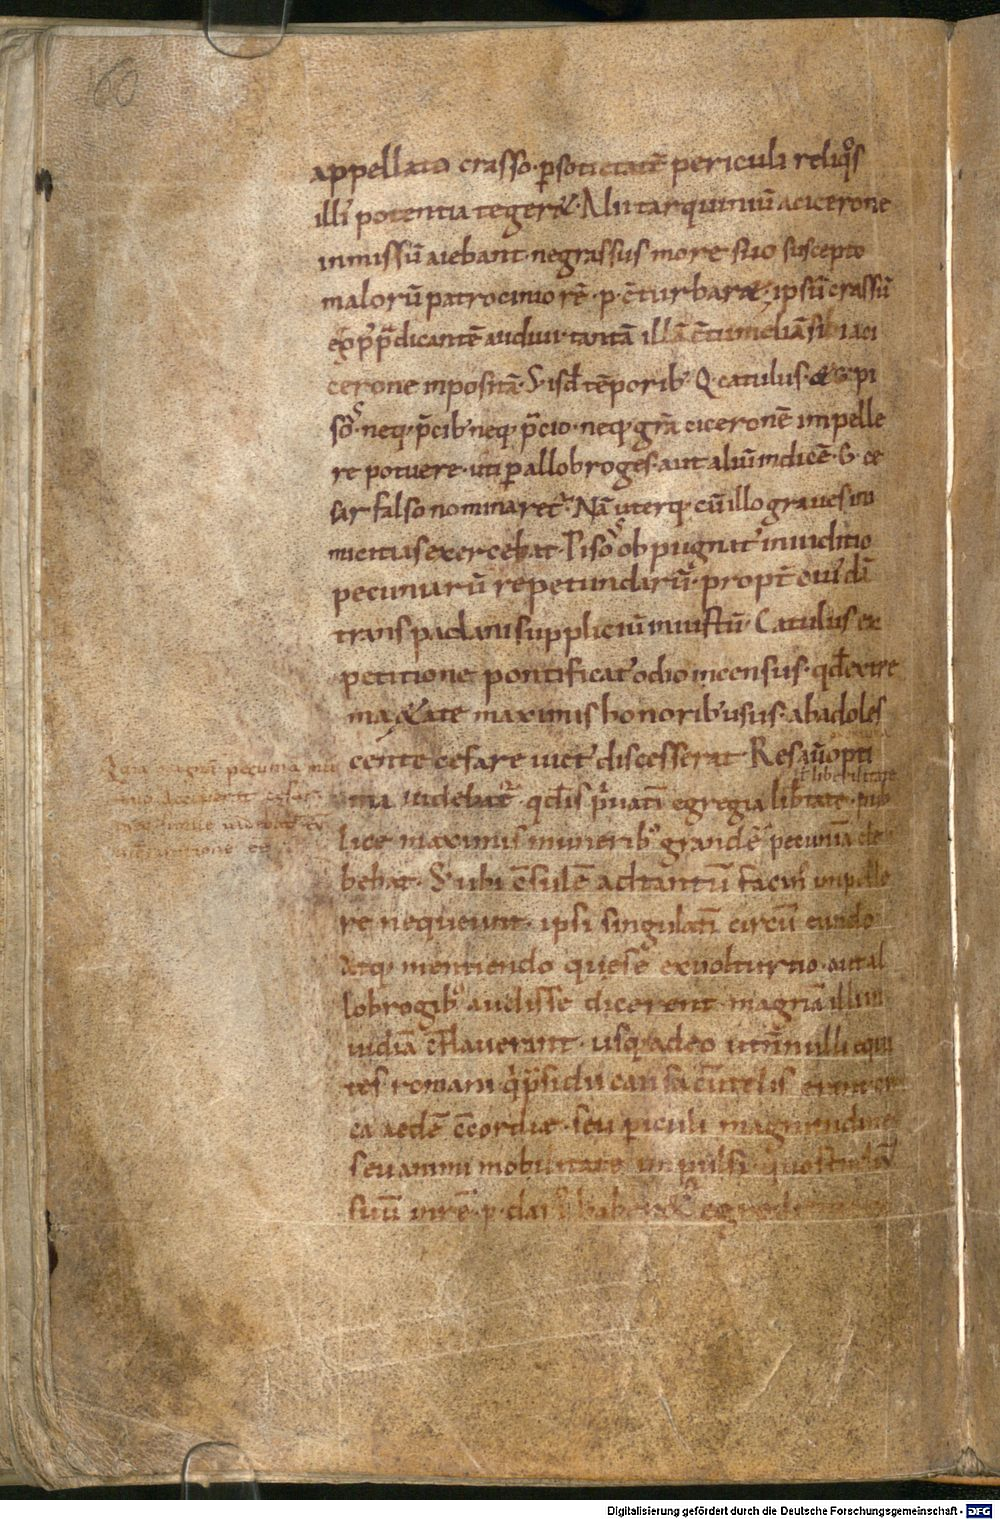 60
appellato crasso· ꝑsocietatē pericula reliq̊s
illi' potentia teger&· Alii tarquiniū acicerone
inmissū aiebant· negrassus more suo suscepto
malorū patrocinio rē· p· c̄turbar&; ipsū crassū
p̄dicantē audiui· tantā illā c̄tumeliā sibi aci
cerone inpositā· S; isdē tēporib; Q· catulus· & pi
neq; p̄cib; neq; p̄cio· neq; gr̄a ciceronē impelle
re potuere· uti ꝑ allobroges· aut aliū indicē· ce
sar falso nominaret᷑· Nā uterq; cū illo graues ini
micitias exercebat· Piso obpugnat' iniuditio
pecuniarū repetundarū· propt̄ cui'dā
transpadani suppliciū iniustū· Catulus ex
petitione pontificat' odio incensus· qđ extre
ma &ate maximis honorib; usus· abadoles
cente cesare uict' discesserat· Res aū opti
ł liberalitate
uidebat᷑· qđ is p'uatī egregia lib̄tate· pub
lice maximis munerib; grandē pecuniā de
bebat· S; ubi c̄sulē adtantū facin' impelle
re nequeunt· ipsi singulatī circū eundo
atq; mentiendo quę se exuolturtio· aut al
lobrogib; audisse dicerent· magnā illi in
uidiā c̄flauerant· usq; adeo ut nulli equi
tes romani q' p̄sidii causa cū telis erant cir
ca aedē c̄cordiæ· seu ꝑiculi magnitudine
seu animi mobilitate impulsi· quo studiū
suū inrē· p· clari' haber& egredi
Quia magnā pecuniā